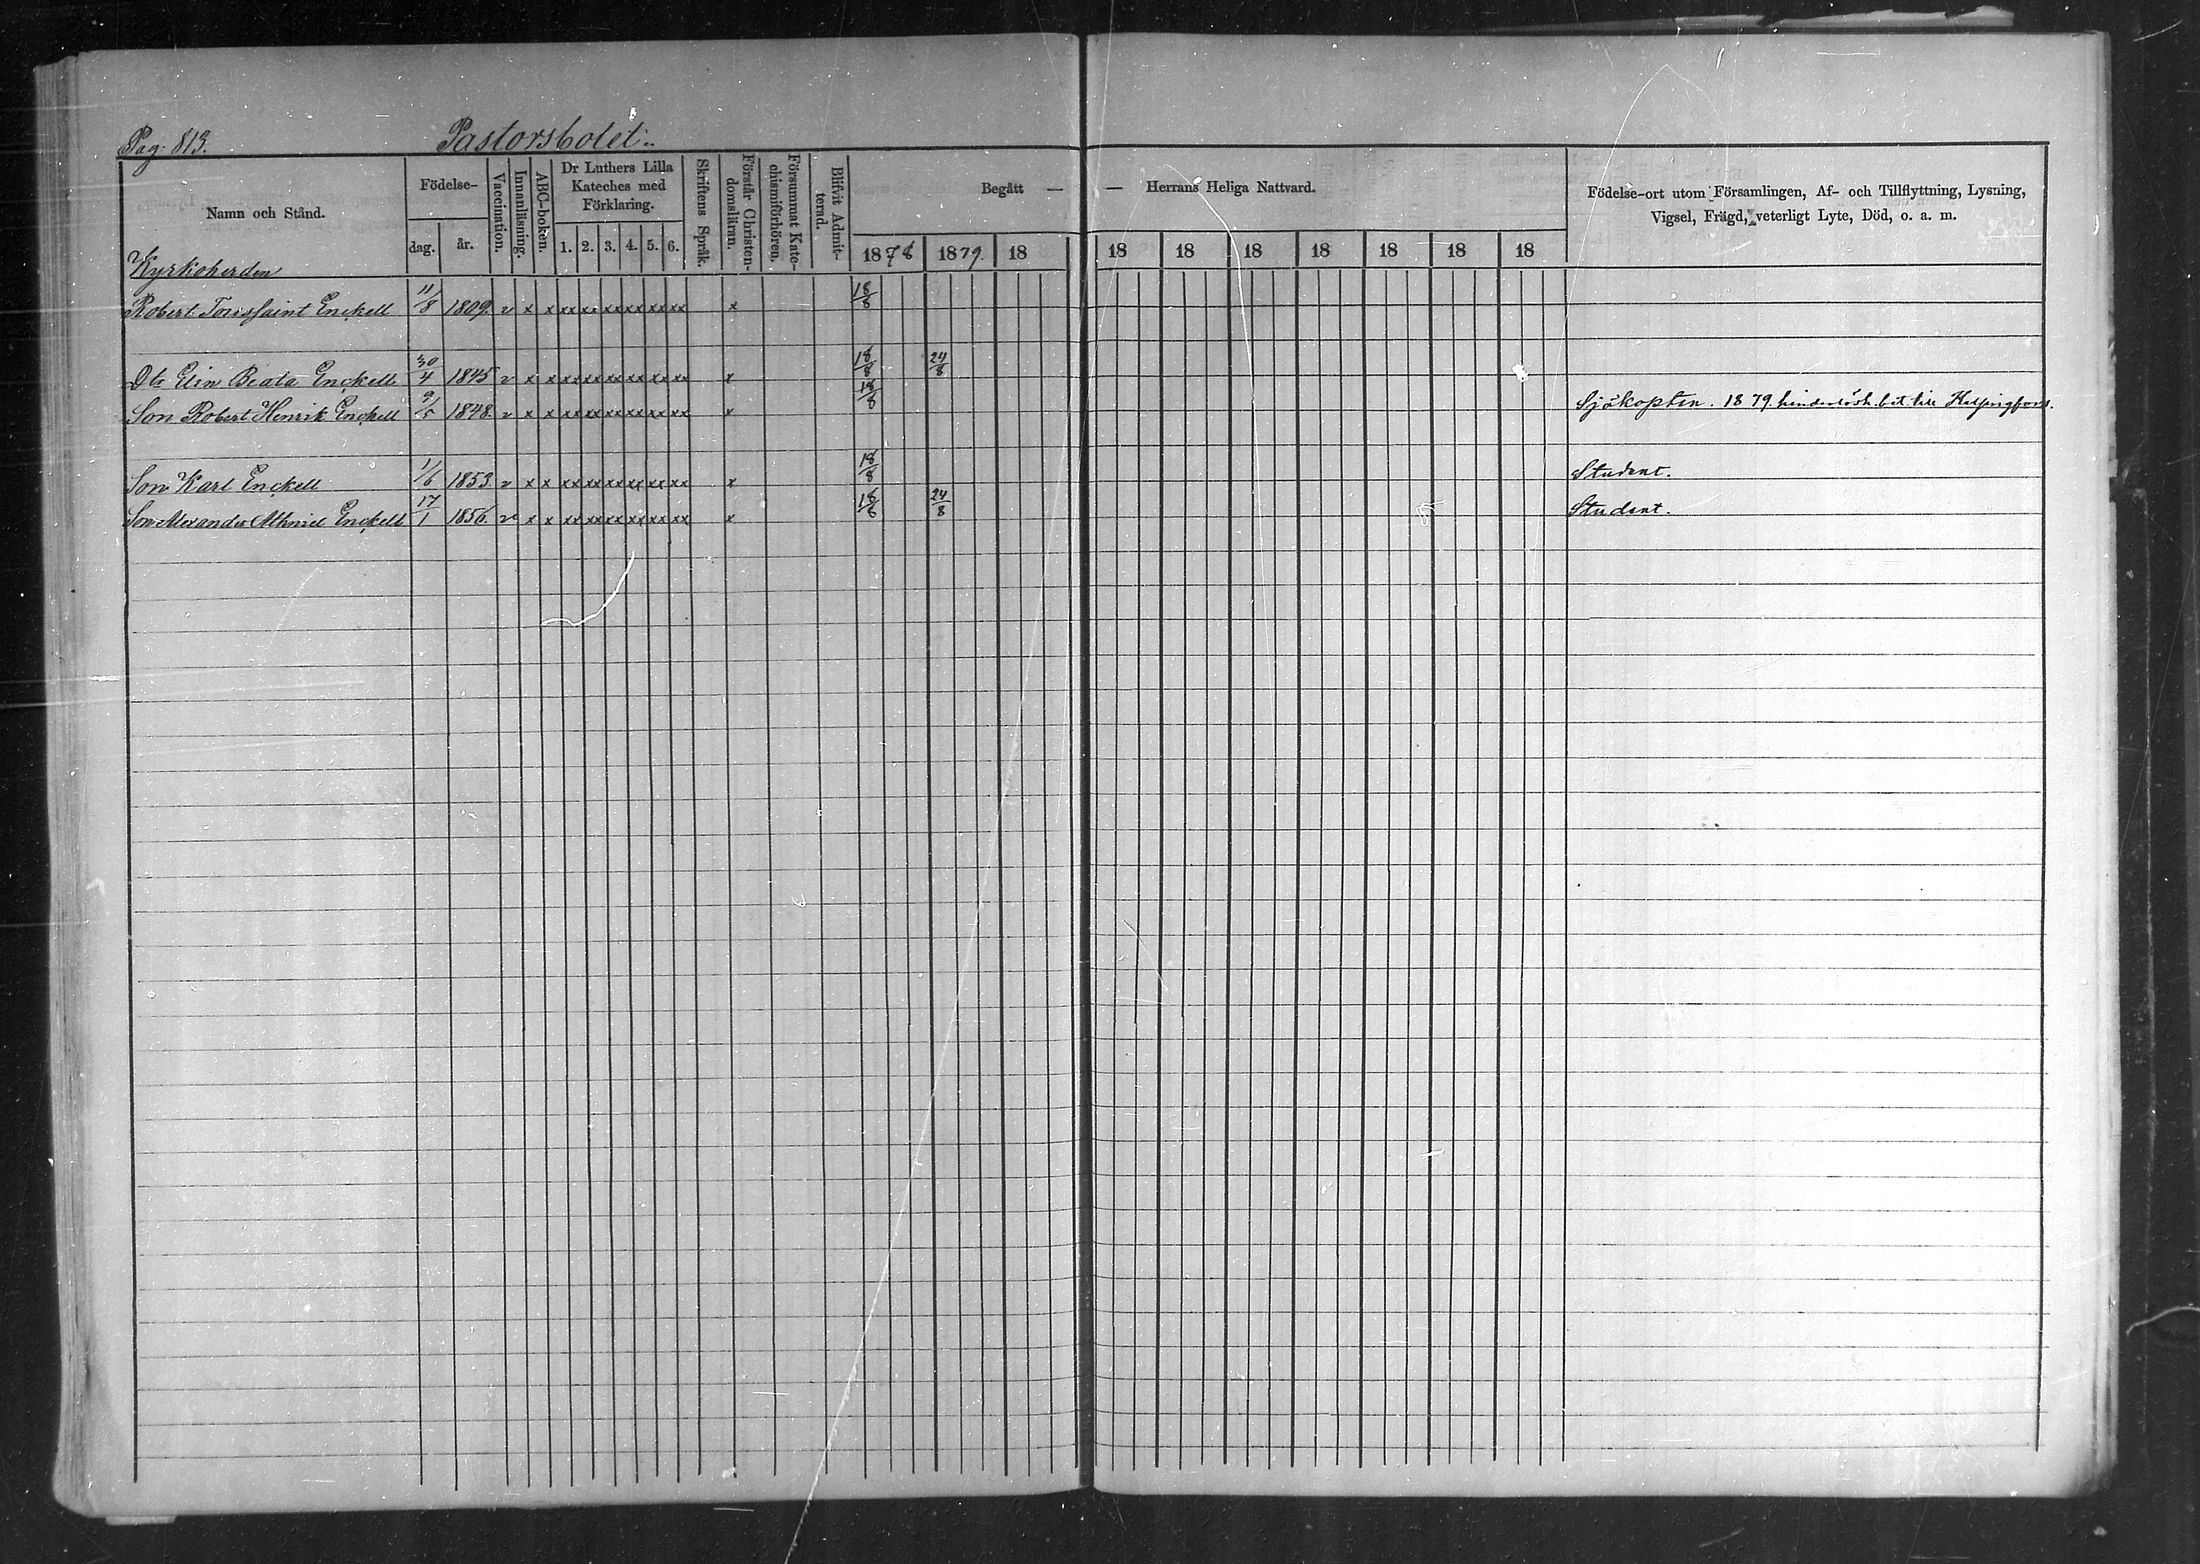 Pag. 813. Pastorsbolet
Namn och Stånd.
Födelse-
dag. år.
Vaccination.
Innanläsning.
ABC-boken.
Dr Luthers Lilla
Kateches med
Förklaring.
1. 2. 3. 4. 5. 6.
Skriftens Språk.
Förstår Christen-
domsläran.
Försummat Kate-
chismiförhören.
Blifvit Admit-
terad.
Begått — — Herrans Heliga Nattvard.
1878 1879. 18 18 18 18 18 18 18 18
Födelse-ort utom Församlingen, Af- och Tillflyttning, Lysning,
Vigsel, Frägd, veterligt Lyte, Död, o. a. m.
Kyrkoherden
Robert Toussaint Enckell 11/8 1809. v x x xx xx xx xx xx xx x 18/8
Dtr Elin Beata Enckell 30/4 1845 v x x xx xx xx xx xx xx x 18/8 24/8
Son Robert Henrik Enckell 9/5 1848. v x x xx xx xx xx xx xx x 18/8 Sjökapten. 1879. hinderlösh. bet. till Helsingfors.
Son Karl Enckell 1/6 1853. v x x xx xx xx xx xx xx x 18/8 Student.
Son Alexander Enckell 17/1 1856. v x x xx xx xx xx xx xx x 18/8 24/8 Student.